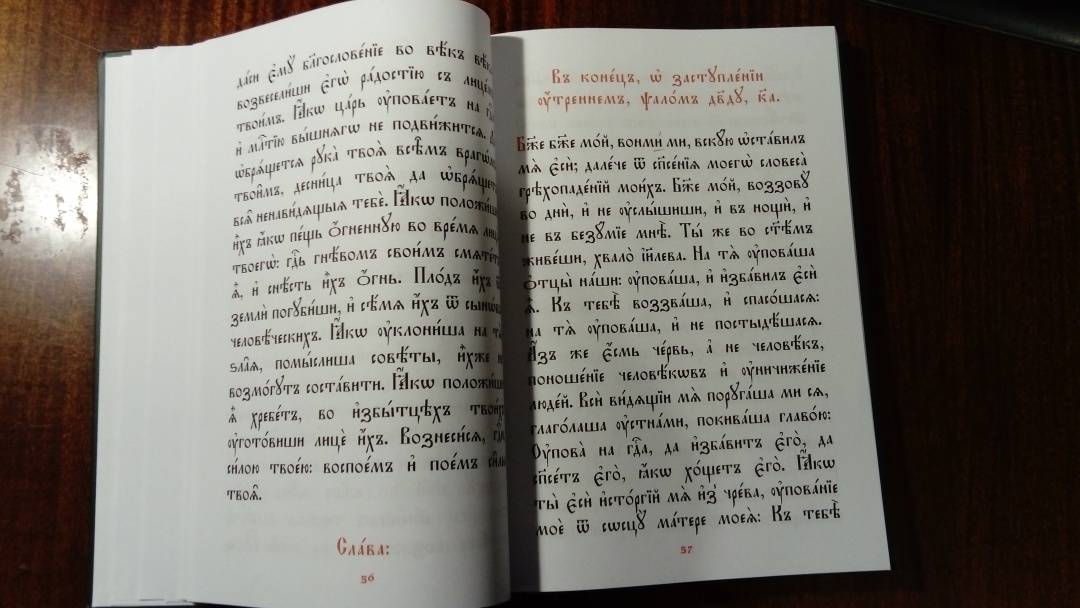 да́си є҆мꙋ̀ блгⷭ҇лове́нїе во вѣ́къ
возвесели́ши є҆го̀ ра́достїю съ
твои́мъ. Ꙗ҆́кѡ ца́рь ᲂу҆пова́етъ на
и҆ млⷭ҇тїю вы́шнѧгѡ не подви́житсѧ.
ѡ҆брѧ́щетсѧ рꙋка̀ твоѧ̀ всѣ̑мъ
твои̑мъ, десни́ца твоѧ̀ да
всѧ̑ ненави́дѧщыѧ тебѐ. Ꙗ҆́кѡ
и҆̀хъ ꙗ҆́кѡ пе́щь ѻ҆́гненную во вре́мѧ
твоегѡ̀: гдⷭ҇ь гнѣ́вомъ свои́мъ
ѧ҆̀, и҆ снѣ́сть и҆̀хъ ѻ҆́гнь. Пло́дъ и҆́хъ
землѝ погꙋби́ши, и҆ сѣ́мѧ и҆́хъ ѿ
человѣ́ческихъ. Ꙗ҆́кѡ ᲂу҆клони́ша на
ѕла̑ѧ, помы́слиша совѣ́ты, и҆̀хже
возмо́гꙋтъ соста́вити. Ꙗ҆́кѡ
ѧ҆̀ хребе́тъ, во и҆збы́тцѣхъ твои́хъ
ᲂу҆гото́виши лицѐ и҆́хъ. Вознеси́сѧ, гдⷭ҇и
си́лою твое́ю: воспое́мъ и҆ пое́мъ си̑лы
твоѧ̑.
Сла́ва:
56
Въ коне́цъ, ѡ҆ застꙋпле́нїи
ᲂу҆́треннемъ, ѱало́мъ дв҃дꙋ, к҃а.
Бж҃е бж҃е мо́й, вонми́ ми, вскꙋ́ю ѡ҆ста́вилъ
мѧ̀ є҆сѝ; дале́че ѿ сп҃се́нїѧ моегѡ̀ словеса̀
грѣхопаде́нїй мои́хъ. Бж҃е мо́й, воззовꙋ̀
во днѝ, и҆ не ᲂу҆слы́шиши, и҆ въ нощѝ, и҆
не въ безꙋ́мїе мнѣ̀. Ты́ же во ст҃ѣ́мъ
живе́ши, хвало̀ і҆и҃лева. На тѧ̀ ᲂу҆пова́ша
ѻ҆тцы̀ на́ши: ᲂу҆пова́ша, и҆ и҆зба́вилъ є҆сѝ
ѧ҆̀. Къ тебѣ̀ воззва́ша, и҆ спасо́шасѧ:
на тѧ̀ ᲂу҆пова́ша, и҆ не постыдѣ́шасѧ.
А҆́зъ же є҆́смь че́рвь, а҆ не человѣ́къ,
поноше́нїе человѣ́кѡвъ и҆ ᲂу҆ничиже́нїе
люде́й. Всѝ ви́дѧщїи мѧ̀ порꙋга́ша ми сѧ,
глаго́лаша ᲂу҆стна́ми, покива́ша главо́ю:
Оу҆пова̀ на гдⷭ҇а, да и҆зба́витъ є҆го̀, да
сп҃се́тъ є҆го̀, ꙗ҆́кѡ хо́щетъ є҆го̀. Ꙗ҆́кѡ
ты̀ є҆сѝ и҆сто́ргїй мѧ̀ и҆з̾ чре́ва, ᲂу҆пова́нїе
моѐ ѿ сѡсцꙋ̀ ма́тере моеѧ̀: Къ тебѣ̀
57